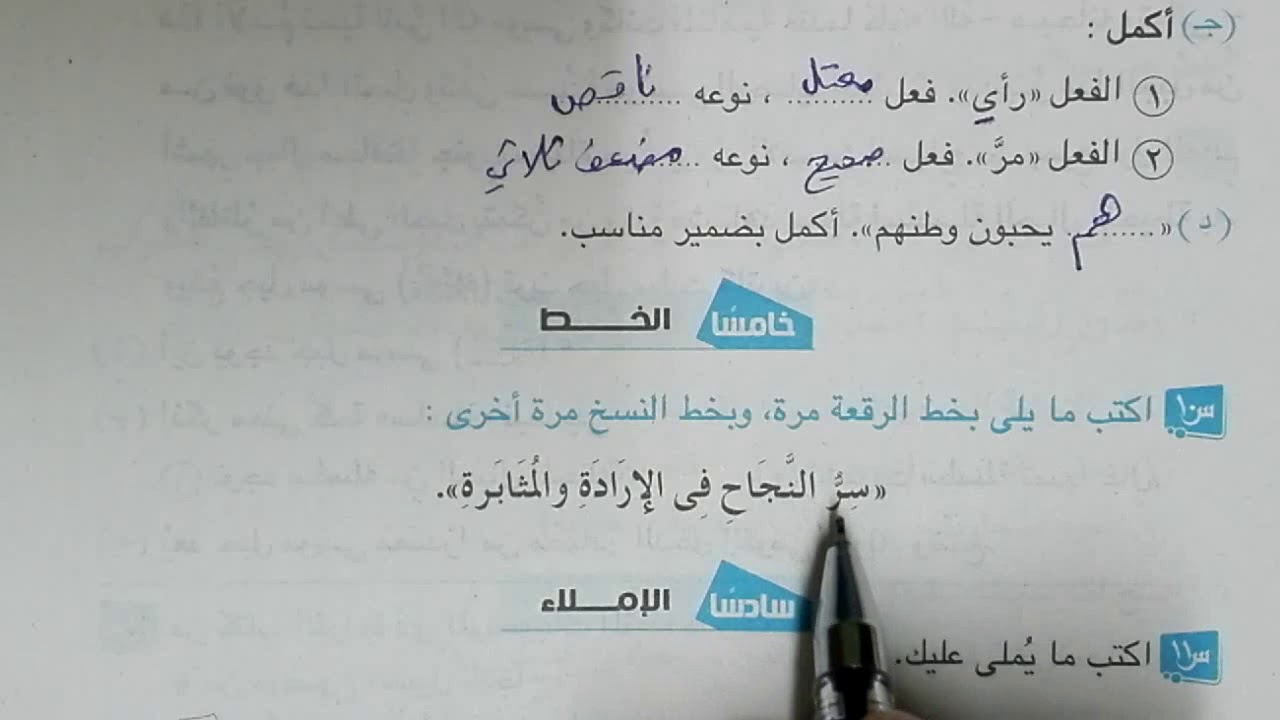 (جـ) أكمل :
① الفعل «رأي». فعل معتل ، نوعه ناقص
② الفعل «مرَّ». فعل صحيح ، نوعه مضعف ثلاثي
(د) «هم يحبون وطنهم». أكمل بضمير مناسب.
خامسًا الخـــط
س١٠ اكتب ما يلى بخط الرقعة مرة، وبخط النسخ مرة أخرى :
«سِرُّ النَّجَاحِ فِى الإِرَادَةِ والمُثَابَرةِ».
سادسًا الإمـــلاء
س١١ اكتب ما يُملى عليك.